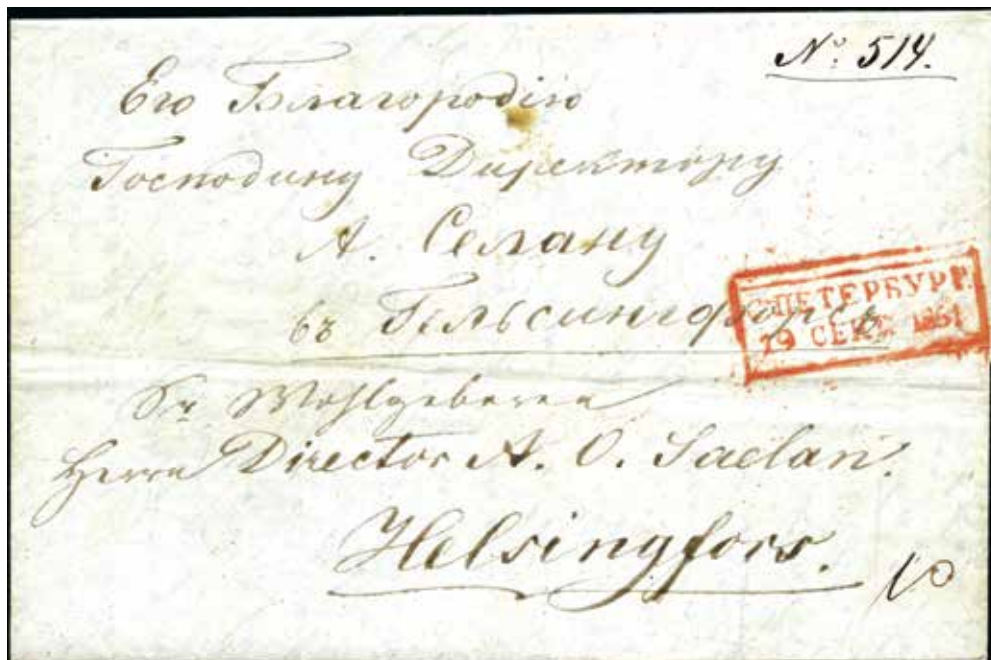 № 514.
Его Благородiю
Господину Директору
А. Селану
въ Гельсингфорсѣ
С.ПЕТЕРБУРГЪ
19 СЕНТ. 1851
Sr Wohlgeboren
Herrn Director A. O. Saelan.
Helsingfors.
10